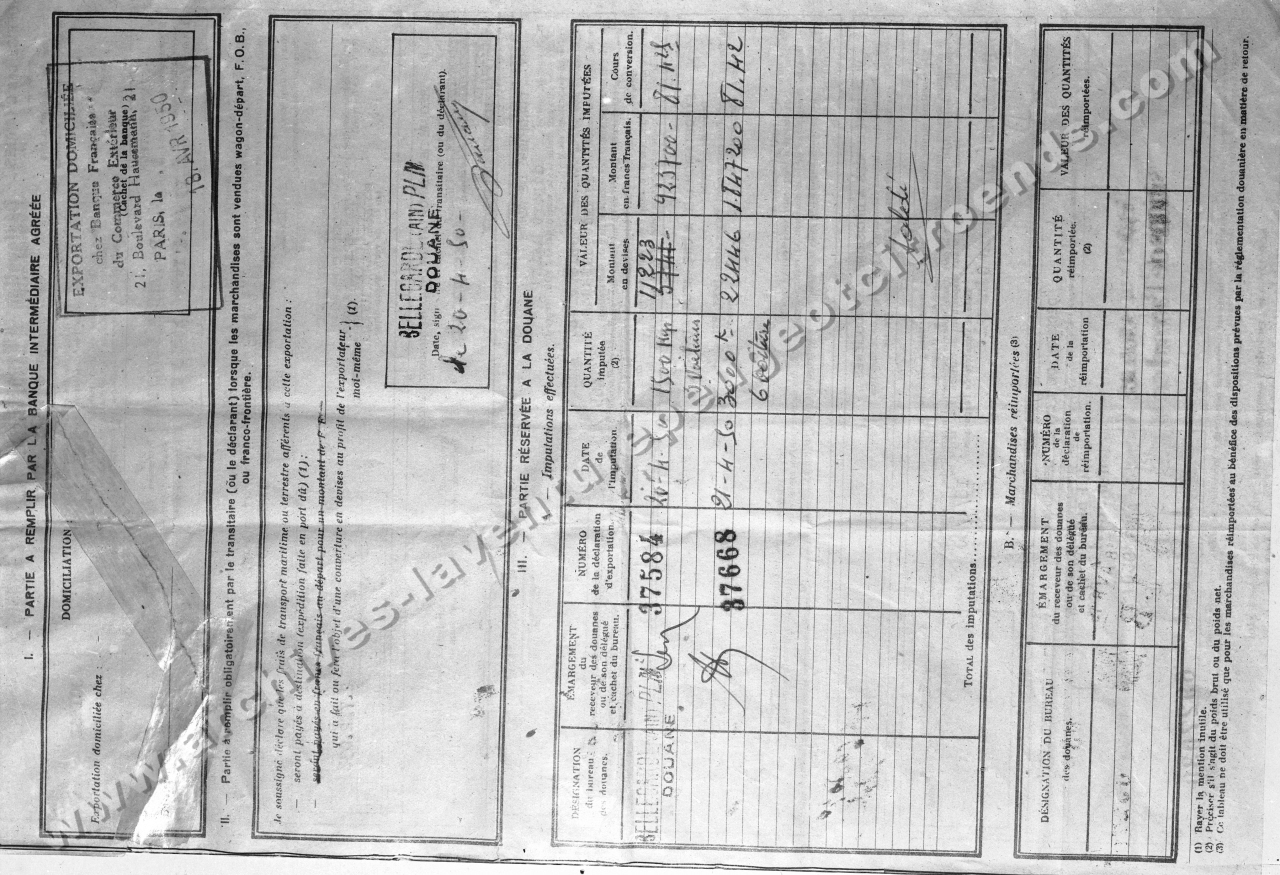 I. — PARTIE A REMPLIR PAR LA BANQUE INTERMÉDIAIRE AGRÉÉE
DOMICILIATION
Exportation domiciliée chez :
EXPORTATION DOMICILIÉE
chez Banque Française
du Commerce Extérieur
(Cachet de la banque)
21, Boulevard Haussmann, 21
PARIS, le
18 AVR 1950
II. — Partie à remplir obligatoirement par le transitaire (ou le déclarant) lorsque les marchandises sont vendues wagon-départ, F.O.B.,
ou franco-frontière.
Je soussigné déclare que les frais de transport maritime ou terrestre afférents à cette exportation :
— seront payés à destination (expédition faite en port dû) (1) :
— seront payés en francs français au départ pour un montant de F
qui a fait ou fera l'objet d'une couverture en devises au profit de l'exportateur
moi-même } (1).
BELLEGARDE (AIN) PLM
DOUANE
Date, signature et cachet du transitaire (ou du déclarant).
le 20-4-50-
III. — PARTIE RÉSERVÉE A LA DOUANE
— Imputations effectuées.
DÉSIGNATION
du bureau
des douanes.
ÉMARGEMENT
du
receveur des douanes
ou de son délégué
et cachet du bureau.
NUMÉRO
de la déclaration
d'exportation.
DATE
de
l'imputation.
QUANTITÉ
imputée
(2)
VALEUR DES QUANTITÉS IMPUTÉES
Montant
en devises
Montant
en francs français.
Cours
de conversion.
BELLEGARDE (AIN) PLM
DOUANE
37584 20-4-50 1500 Kgs 11223 923700- 81.425
37668 21-4-50 3000 k 22446 1.847200 81.42
6 voitures
TOTAL des imputations
B. — Marchandises réimportées (3)
DÉSIGNATION DU BUREAU
des douanes.
ÉMARGEMENT
du receveur des douanes
ou de son délégué
et cachet du bureau.
NUMÉRO
de la
déclaration
de
réimportation.
DATE
de la
réimportation
QUANTITÉ
réimportée.
(2)
VALEUR DES QUANTITÉS
réimportées.
(1) Rayer la mention inutile.
(2) Préciser s'il s'agit du poids brut ou du poids net.
(3) Ce tableau ne doit être utilisé que pour les marchandises réimportées au bénéfice des dispositions prévues par la réglementation douanière en matière de retour.